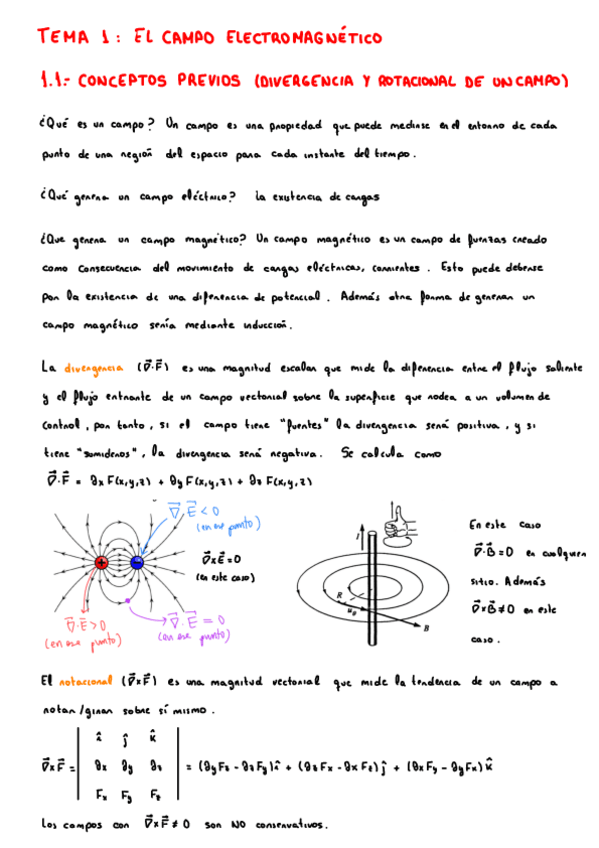 TEMA 1: EL CAMPO ELECTROMAGNÉTICO
1.1.- CONCEPTOS PREVIOS (DIVERGENCIA Y ROTACIONAL DE UN CAMPO)
¿Qué es un campo? Un campo es una propiedad que puede medirse en el entorno de cada
punto de una región del espacio para cada instante del tiempo.
¿Qué genera un campo eléctrico? La existencia de cargas
¿Que genera un campo magnético? Un campo magnético es un campo de fuerzas creado
como consecuencia del movimiento de cargas eléctricas, corrientes. Esto puede deberse
por la existencia de una diferencia de potencial. Además otra forma de generar un
campo magnético sería mediante inducción.
La divergencia (∇⃗·F⃗) es una magnitud escalar que mide la diferencia entre el flujo saliente
y el flujo entrante de un campo vectorial sobre la superficie que rodea a un volumen de
control, por tanto, si el campo tiene "fuentes" la divergencia será positiva, y si
tiene "sumideros", la divergencia será negativa. Se calcula como
∇⃗·F⃗ = ∂x F(x,y,z) + ∂y F(x,y,z) + ∂z F(x,y,z)
∇⃗·E⃗ < 0
(en ese punto)
∇⃗xE⃗ = 0
(en este caso)
+
-
∇⃗·E⃗ > 0
(en ese punto)
∇⃗·E⃗ = 0
(en ese punto)
I
R
B
En este caso
∇⃗·B⃗ = 0 en cualquier
sitio. Además
∇⃗xB⃗ ≠ 0 en este
caso.
El rotacional (∇⃗xF⃗) es una magnitud vectorial que mide la tendencia de un campo a
rotar/girar sobre sí mismo.
î ĵ k̂
∇⃗xF⃗ = ∂x ∂y ∂z = (∂yFz - ∂zFy)î + (∂zFx - ∂xFz)ĵ + (∂xFy - ∂yFx)k̂
Fx Fy Fz
Los campos con ∇⃗xF⃗ ≠ 0 son NO conservativos.